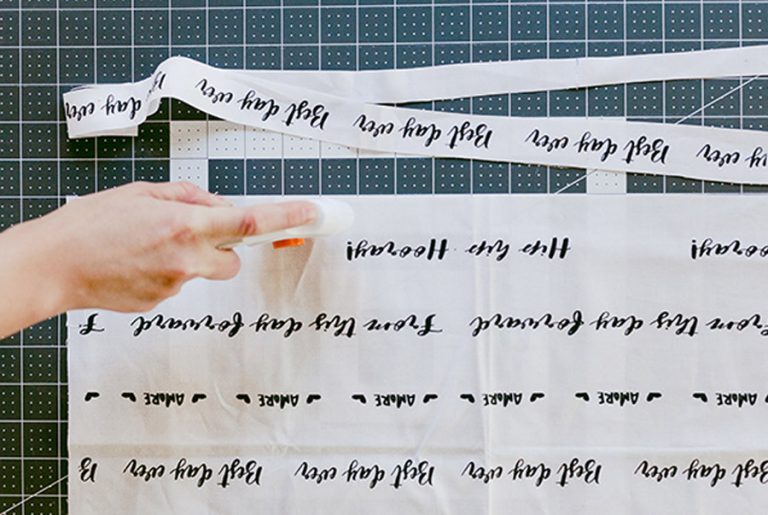 Best day ever Best day ever Best day ever Best day ever B
AMORE AMORE AMORE AMORE AMORE AMORE
From this day forward From this day forward F
ooray! Hip hip Hooray!
day ever Best day ever Best day ever Best day ever B day ever